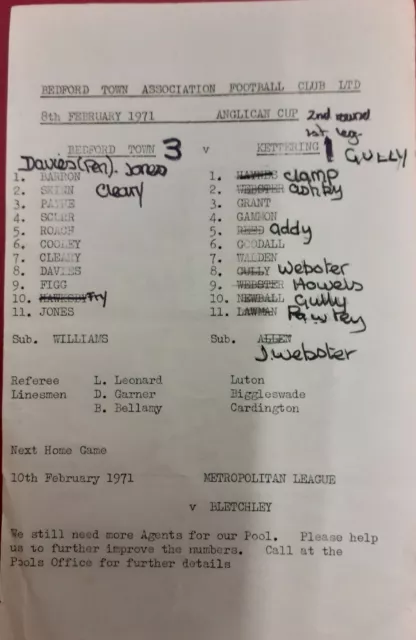 BEDFORD TOWN ASSOCIATION FOOTBALL CLUB LTD
8th FEBRUARY 1971 ANGLICAN CUP 2nd round
1st leg.
BEDFORD TOWN 3 v KETTERING 1 GULLY
Davies (Pen). Jones
Cleary
1. BARRON 1. HAYNES clamp
2. SKINN 2. WEBSTER ashby
3. PAINE 3. GRANT
4. SCURR 4. GAMMON
5. ROACH 5. REED addy
6. COOLEY 6. GOODALL
7. CLEARY 7. WALDEN
8. DAVIES 8. GULLY Webster
9. FIGG 9. WEBSTER Howels
10. HAWKSBY Fry 10. NEWBALL Gully
11. JONES 11. LAWMAN Pawley
Sub. WILLIAMS Sub. ALLEN
J webster
Referee L. Leonard Luton
Linesmen D. Garner Biggleswade
B. Bellamy Cardington
Next Home Game
10th February 1971 METROPOLITAN LEAGUE
v BLETCHLEY
We still need more Agents for our Pool. Please help
us to further improve the numbers. Call at the
Pools Office for further details